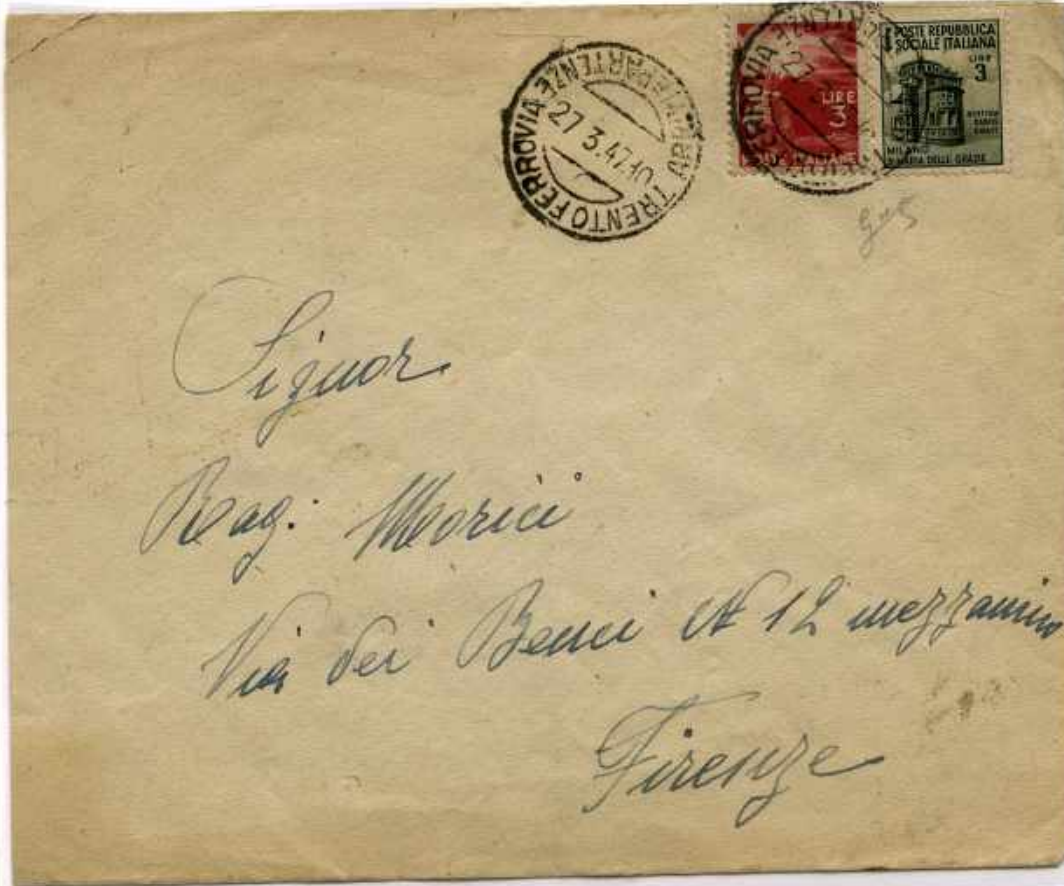 TRENTO FERROVIA ARRIVI E PARTENZE
27.3.47.10
LIRE
3
POSTE ITALIANE
POSTE REPUBBLICA
SOCIALE ITALIANA
LIRE
3
MILANO
S. MARIA DELLE GRAZIE
Signor
Rag. Morici
Via dei Benci N 12 mezzanino
Firenze